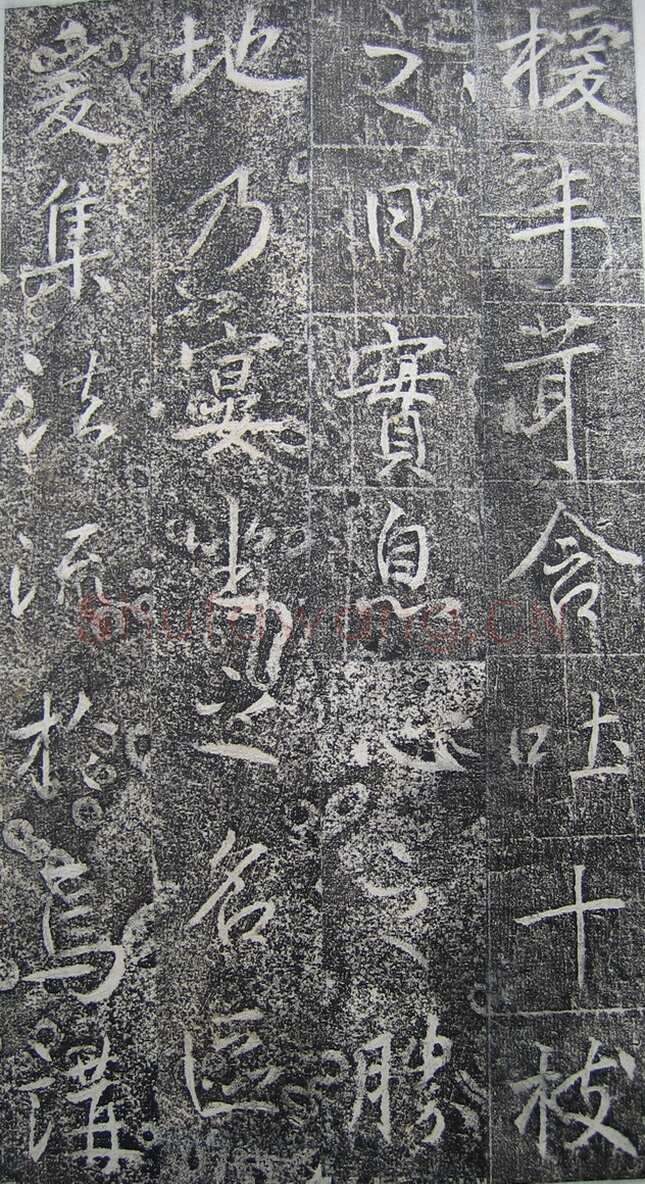 楥丰茸含吐十枝
之日實息心之勝
地乃宴坐之名區
爰集法流於焉講
shufawang.CN